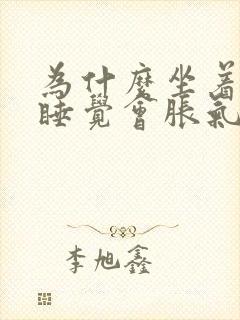 为什麽坐着
睡覺會脹氣
李旭鑫